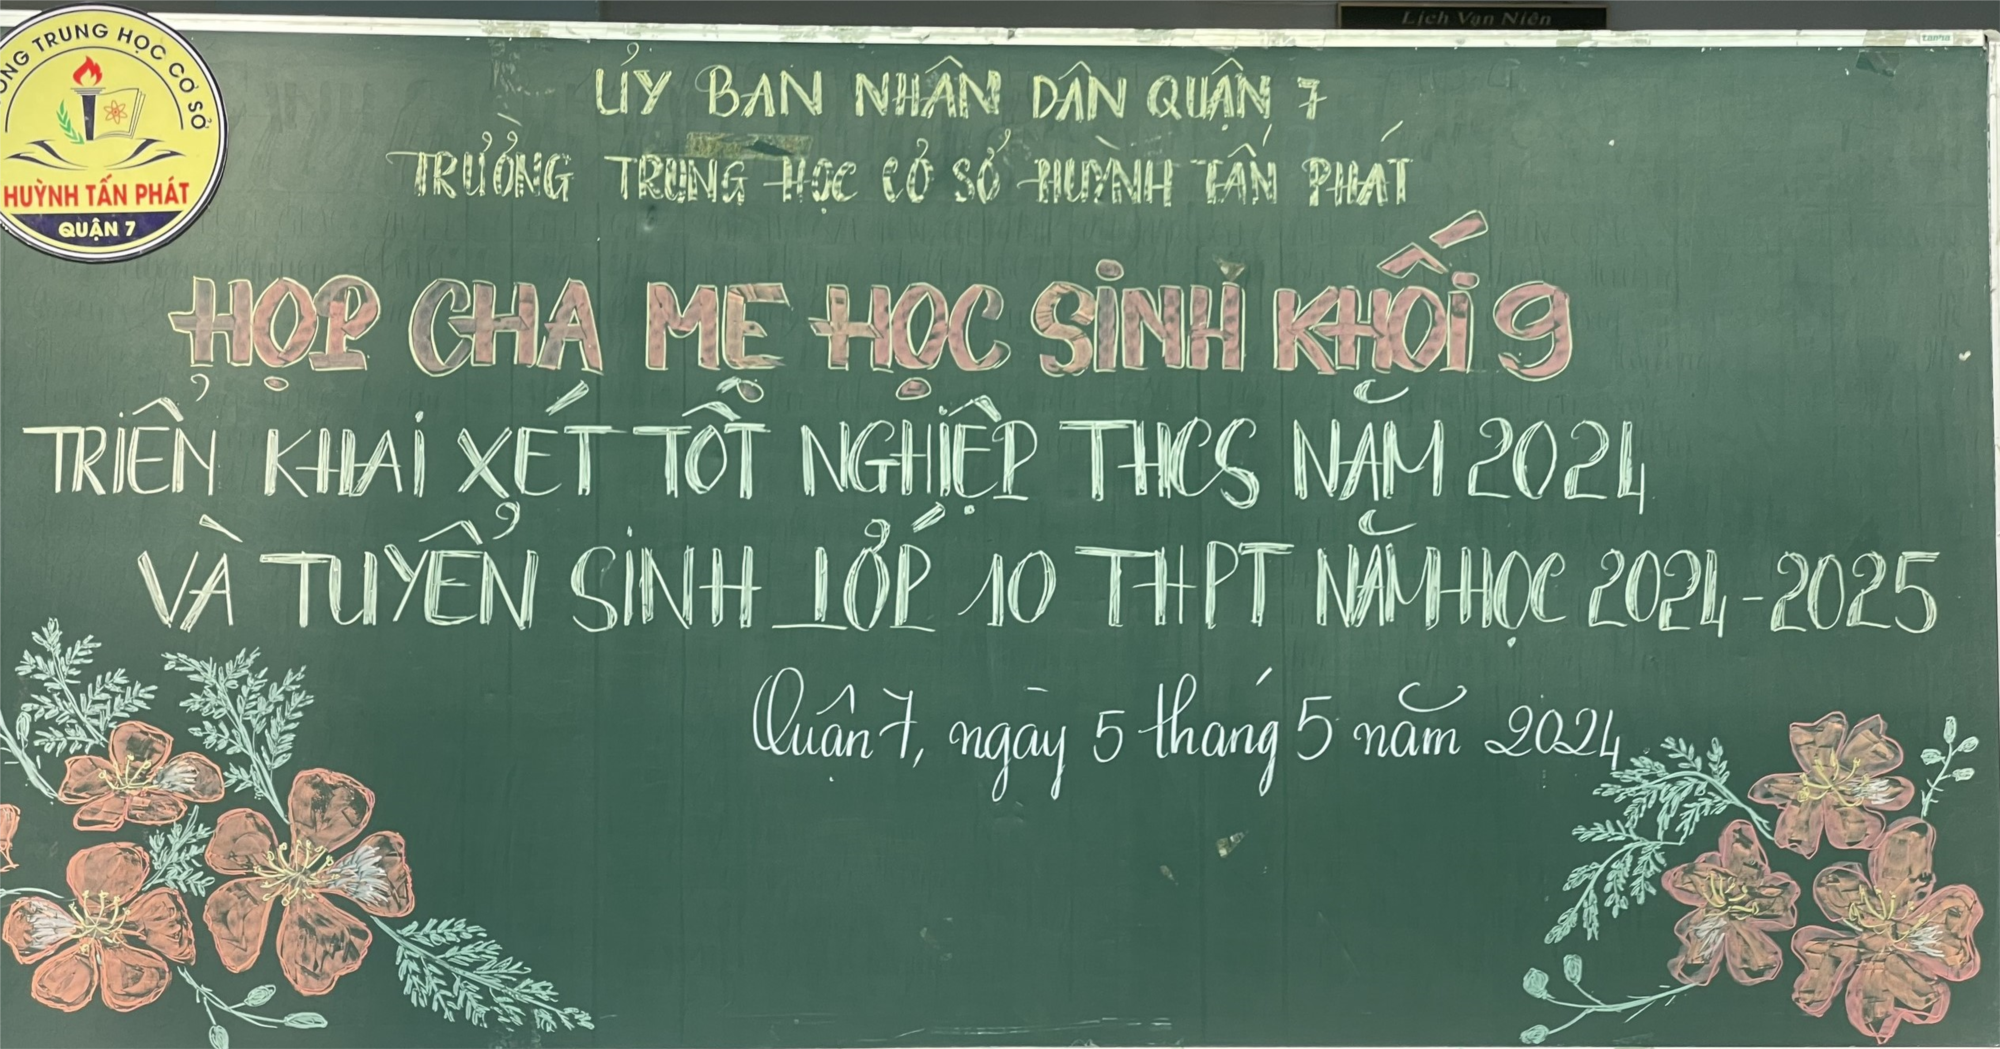 Lịch Vạn Niên
TRUNG HỌC CƠ SỞ
HUỲNH TẤN PHÁT
QUẬN 7
ỦY BAN NHÂN DÂN QUẬN 7
TRƯỜNG TRUNG HỌC CƠ SỞ HUỲNH TẤN PHÁT
HỌP CHA MẸ HỌC SINH KHỐI 9
TRIỂN KHAI XÉT TỐT NGHIỆP THCS NĂM 2024
VÀ TUYỂN SINH LỚP 10 THPT NĂM HỌC 2024-2025
Quận 7, ngày 5 tháng 5 năm 2024